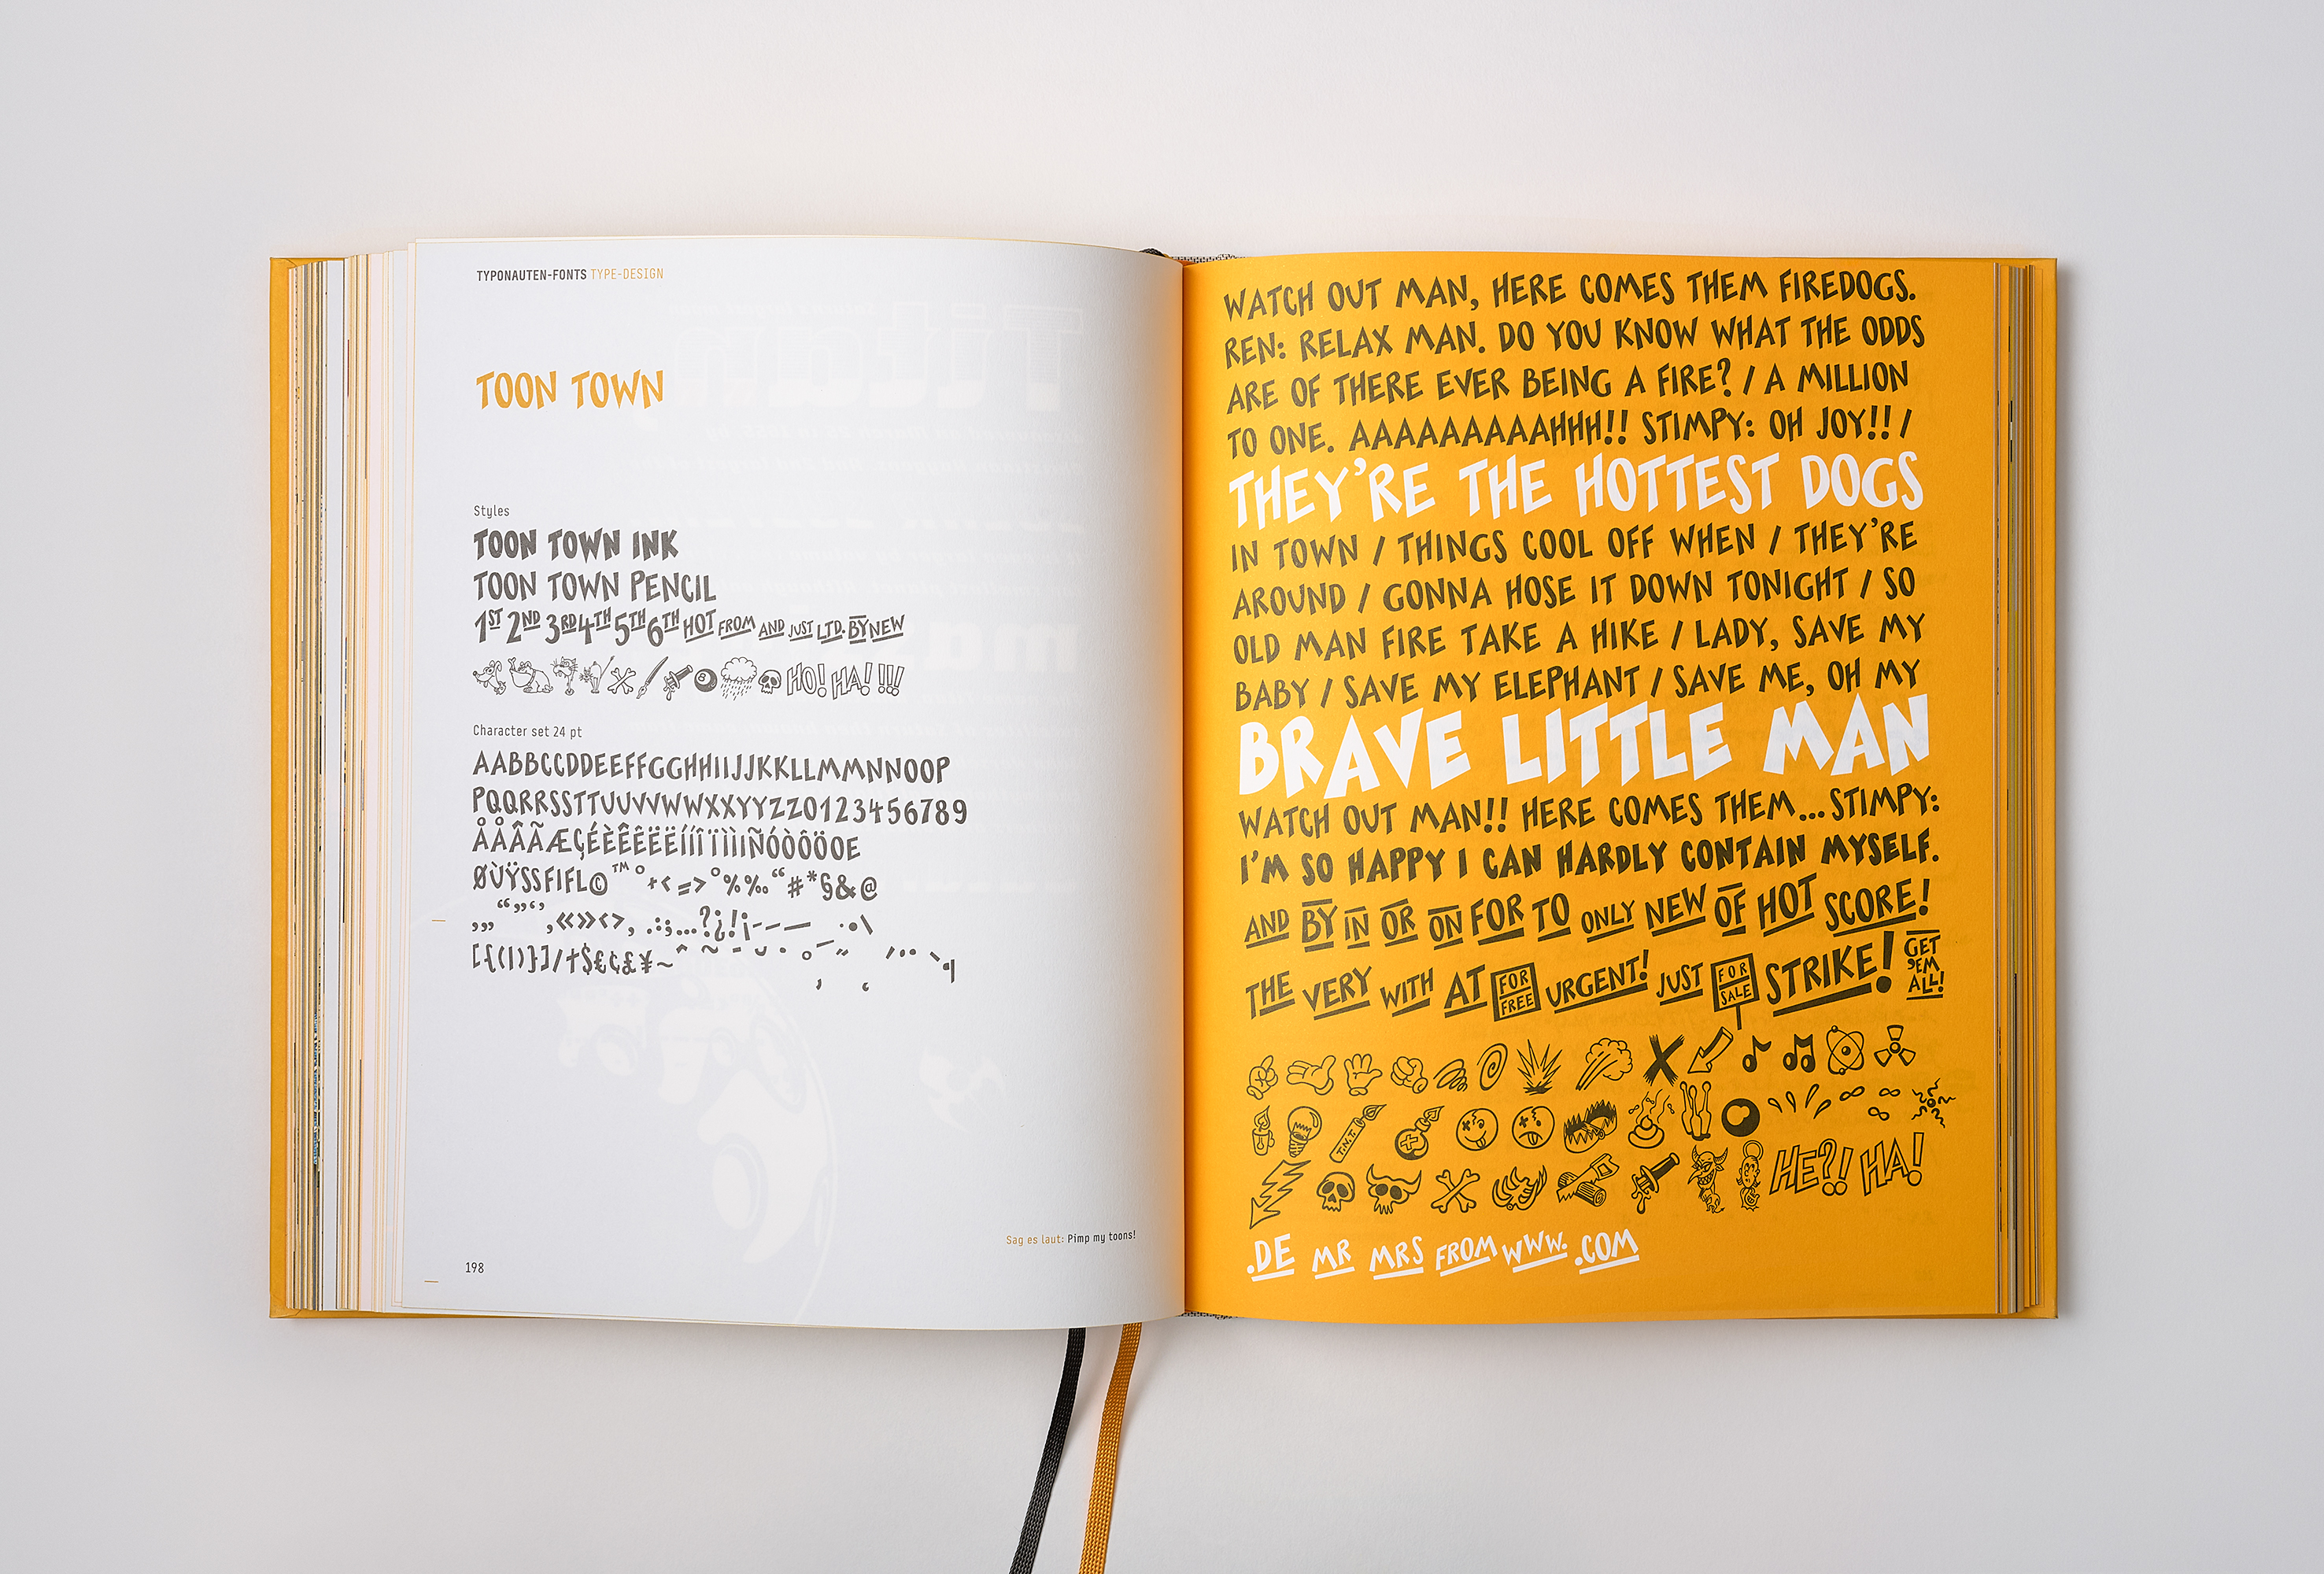 TYPONAUTEN-FONTS TYPE-DESIGN
TOON TOWN
Styles
TOON TOWN INK
TOON TOWN PENCIL
1ST 2ND 3RD 4TH 5TH 6TH HOT FROM AND JUST LTD. BY NEW
8 HO! HA! !!!
Character set 24 pt
AABBCCDDEEFFGGHHIIJJKKLLMMNNOOP
PQQRRSSTTUUVVWWXXYYZZ0123456789
ØÙŸSSFIFL©™°+<=>°%‰“#*§&@
[{(|)}]/†$€¢£¥~
Sag es laut: Pimp my toons!
198
WATCH OUT MAN, HERE COMES THEM FIREDOGS.
REN: RELAX MAN. DO YOU KNOW WHAT THE ODDS
ARE OF THERE EVER BEING A FIRE? / A MILLION
TO ONE. AAAAAAAAAAHHH!! STIMPY: OH JOY!! /
THEY’RE THE HOTTEST DOGS
IN TOWN / THINGS COOL OFF WHEN / THEY’RE
AROUND / GONNA HOSE IT DOWN TONIGHT / SO
OLD MAN FIRE TAKE A HIKE / LADY, SAVE MY
BABY / SAVE MY ELEPHANT / SAVE ME, OH MY
BRAVE LITTLE MAN
WATCH OUT MAN!! HERE COMES THEM...STIMPY:
I’M SO HAPPY I CAN HARDLY CONTAIN MYSELF.
AND BY IN OR ON FOR TO ONLY NEW OF HOT SCORE!
THE VERY WITH AT FOR FREE URGENT! JUST FOR SALE STRIKE! GET ’EM ALL!
T.N.T.
HE?! HA!
.DE MR MRS FROM WWW. .COM